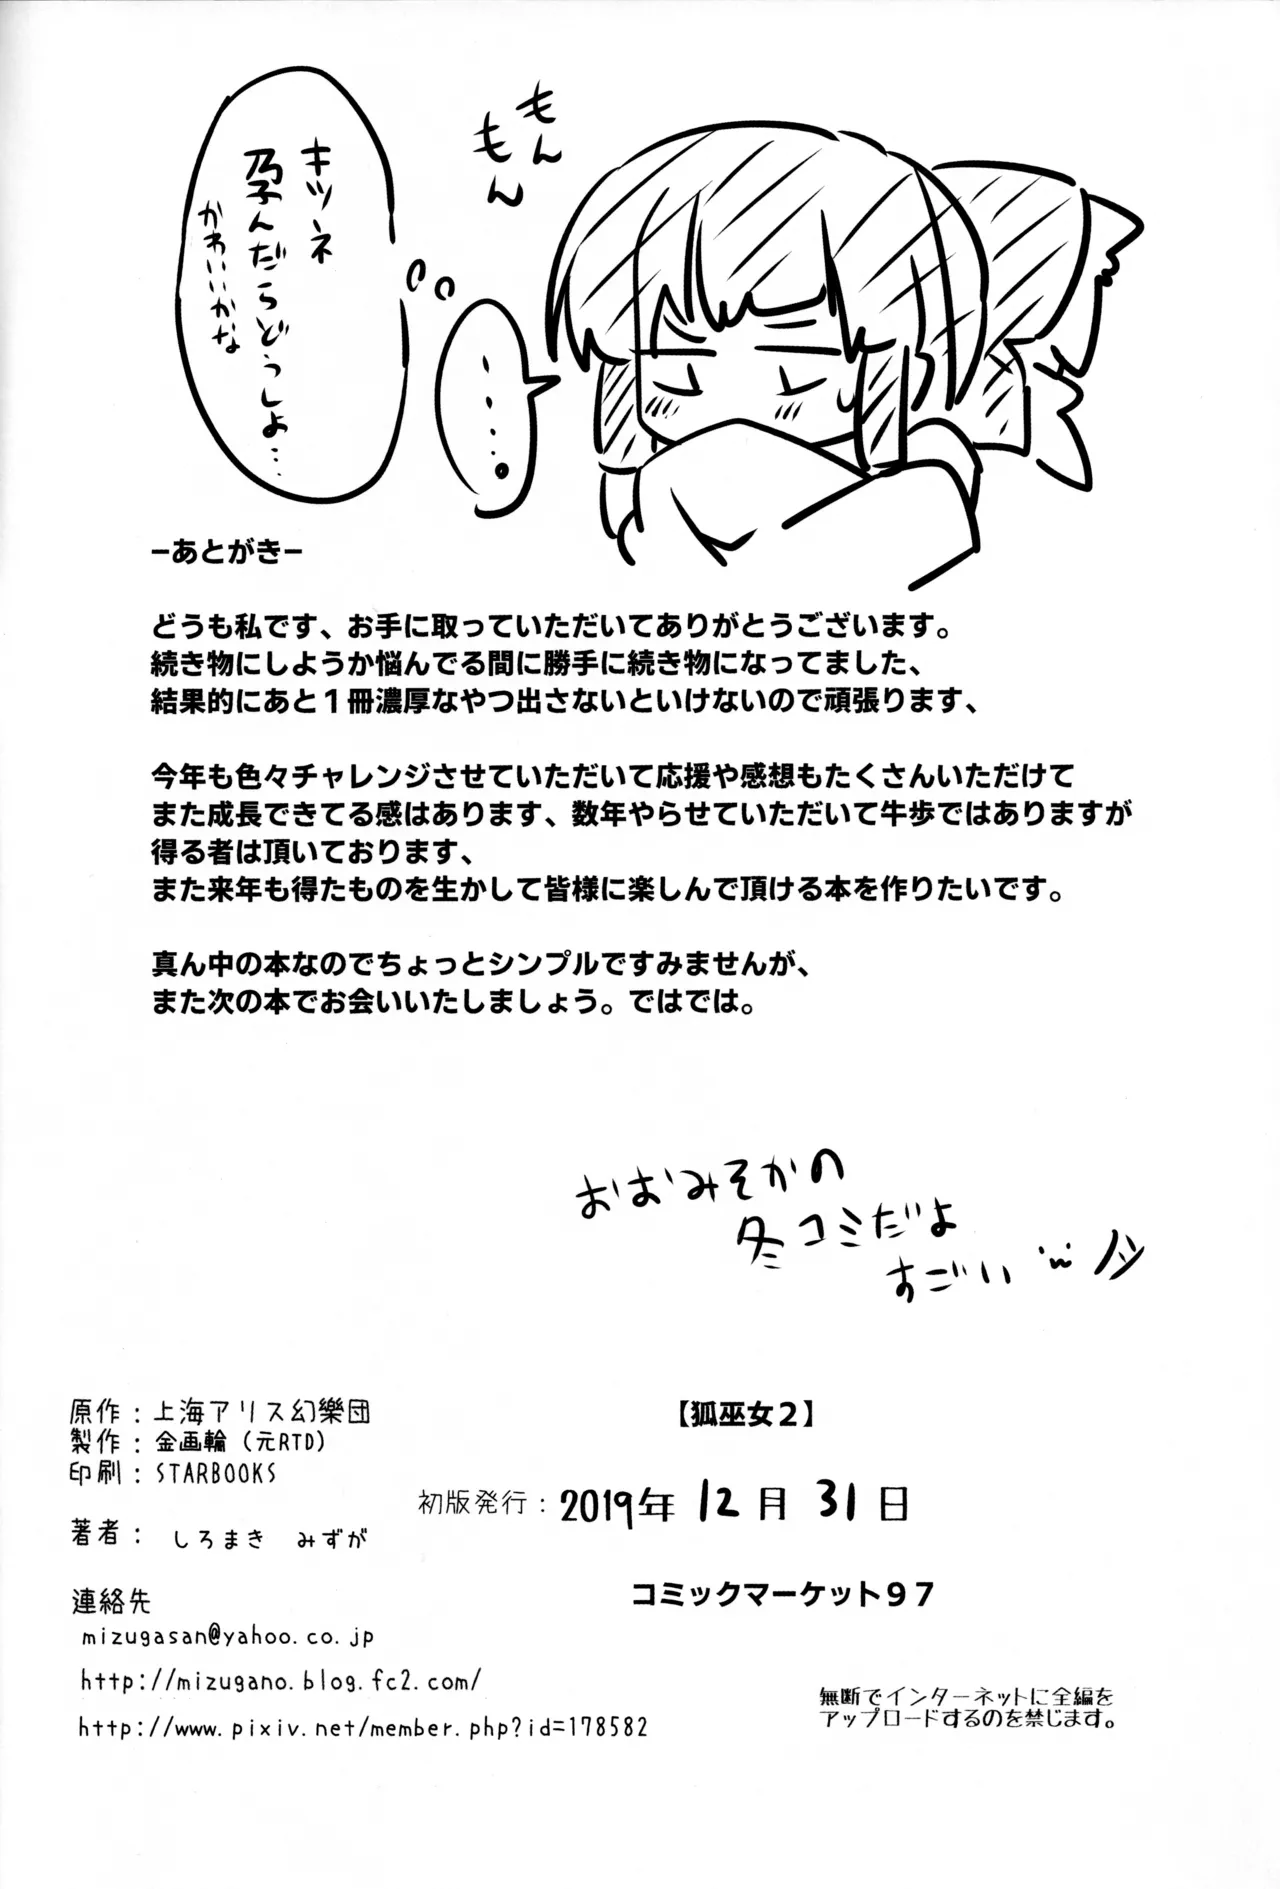 もん
もん
キツネ
孕んだらどうしよ…
かわいいかな
・・・・。
ーあとがきー
どうも私です、お手に取っていただいてありがとうございます。
続き物にしようか悩んでる間に勝手に続き物になってました、
結果的にあと１冊濃厚なやつ出さないといけないので頑張ります、
今年も色々チャレンジさせていただいて応援や感想もたくさんいただけて
また成長できてる感はあります、数年やらせていただいて牛歩ではありますが
得る者は頂いております、
また来年も得たものを生かして皆様に楽しんで頂ける本を作りたいです。
真ん中の本なのでちょっとシンプルですみませんが、
また次の本でお会いいたしましょう。ではでは。
おおみそかの
冬コミだよ
すごい
原作：上海アリス幻樂団
製作：金画輪（元RTD）
印刷：STARBOOKS
著者： しろまき みずが
連絡先
mizugasan@yahoo.co.jp
http://mizugano.blog.fc2.com/
http://www.pixiv.net/member.php?id=178582
【狐巫女２】
初版発行：2019年 12月 31日
コミックマーケット９７
無断でインターネットに全編を
アップロードするのを禁じます。